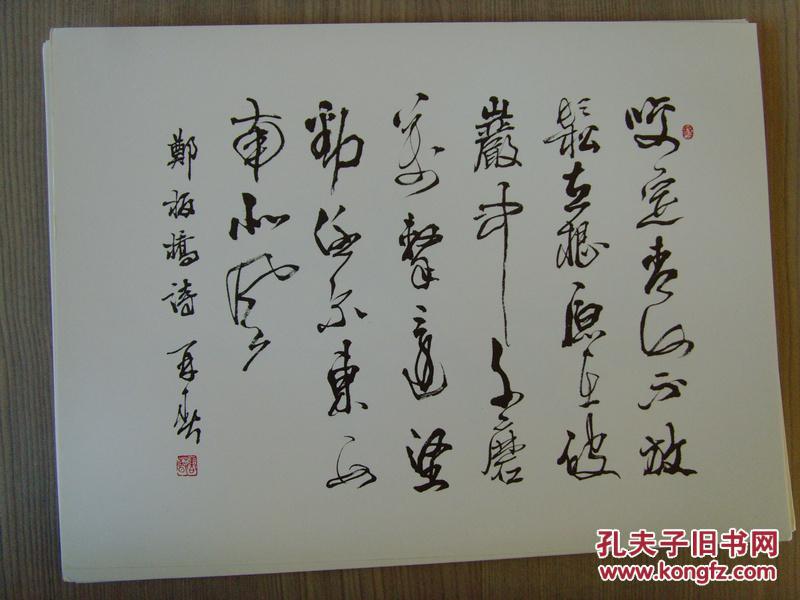 咬定青山不放
鬆立根原在破
巖中千磨
萬擊還堅
勁任尔東西
南北風
鄭板橋詩
孔夫子旧书网
www.kongfz.com